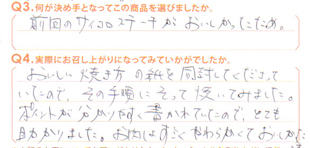 Q3.何が決め手となってこの商品を選びましたか。
前回のサイコロステーキがおいしかったため。
Q4.実際にお召し上がりになってみていかがでしたか。
おいしい焼き方の紙を同封してくださって
いたので、その手順にそって焼いてみました。
ポイントが分かりやすく書かれていたので、とても
助かりました。お肉はすごくやわらかくておいしかった